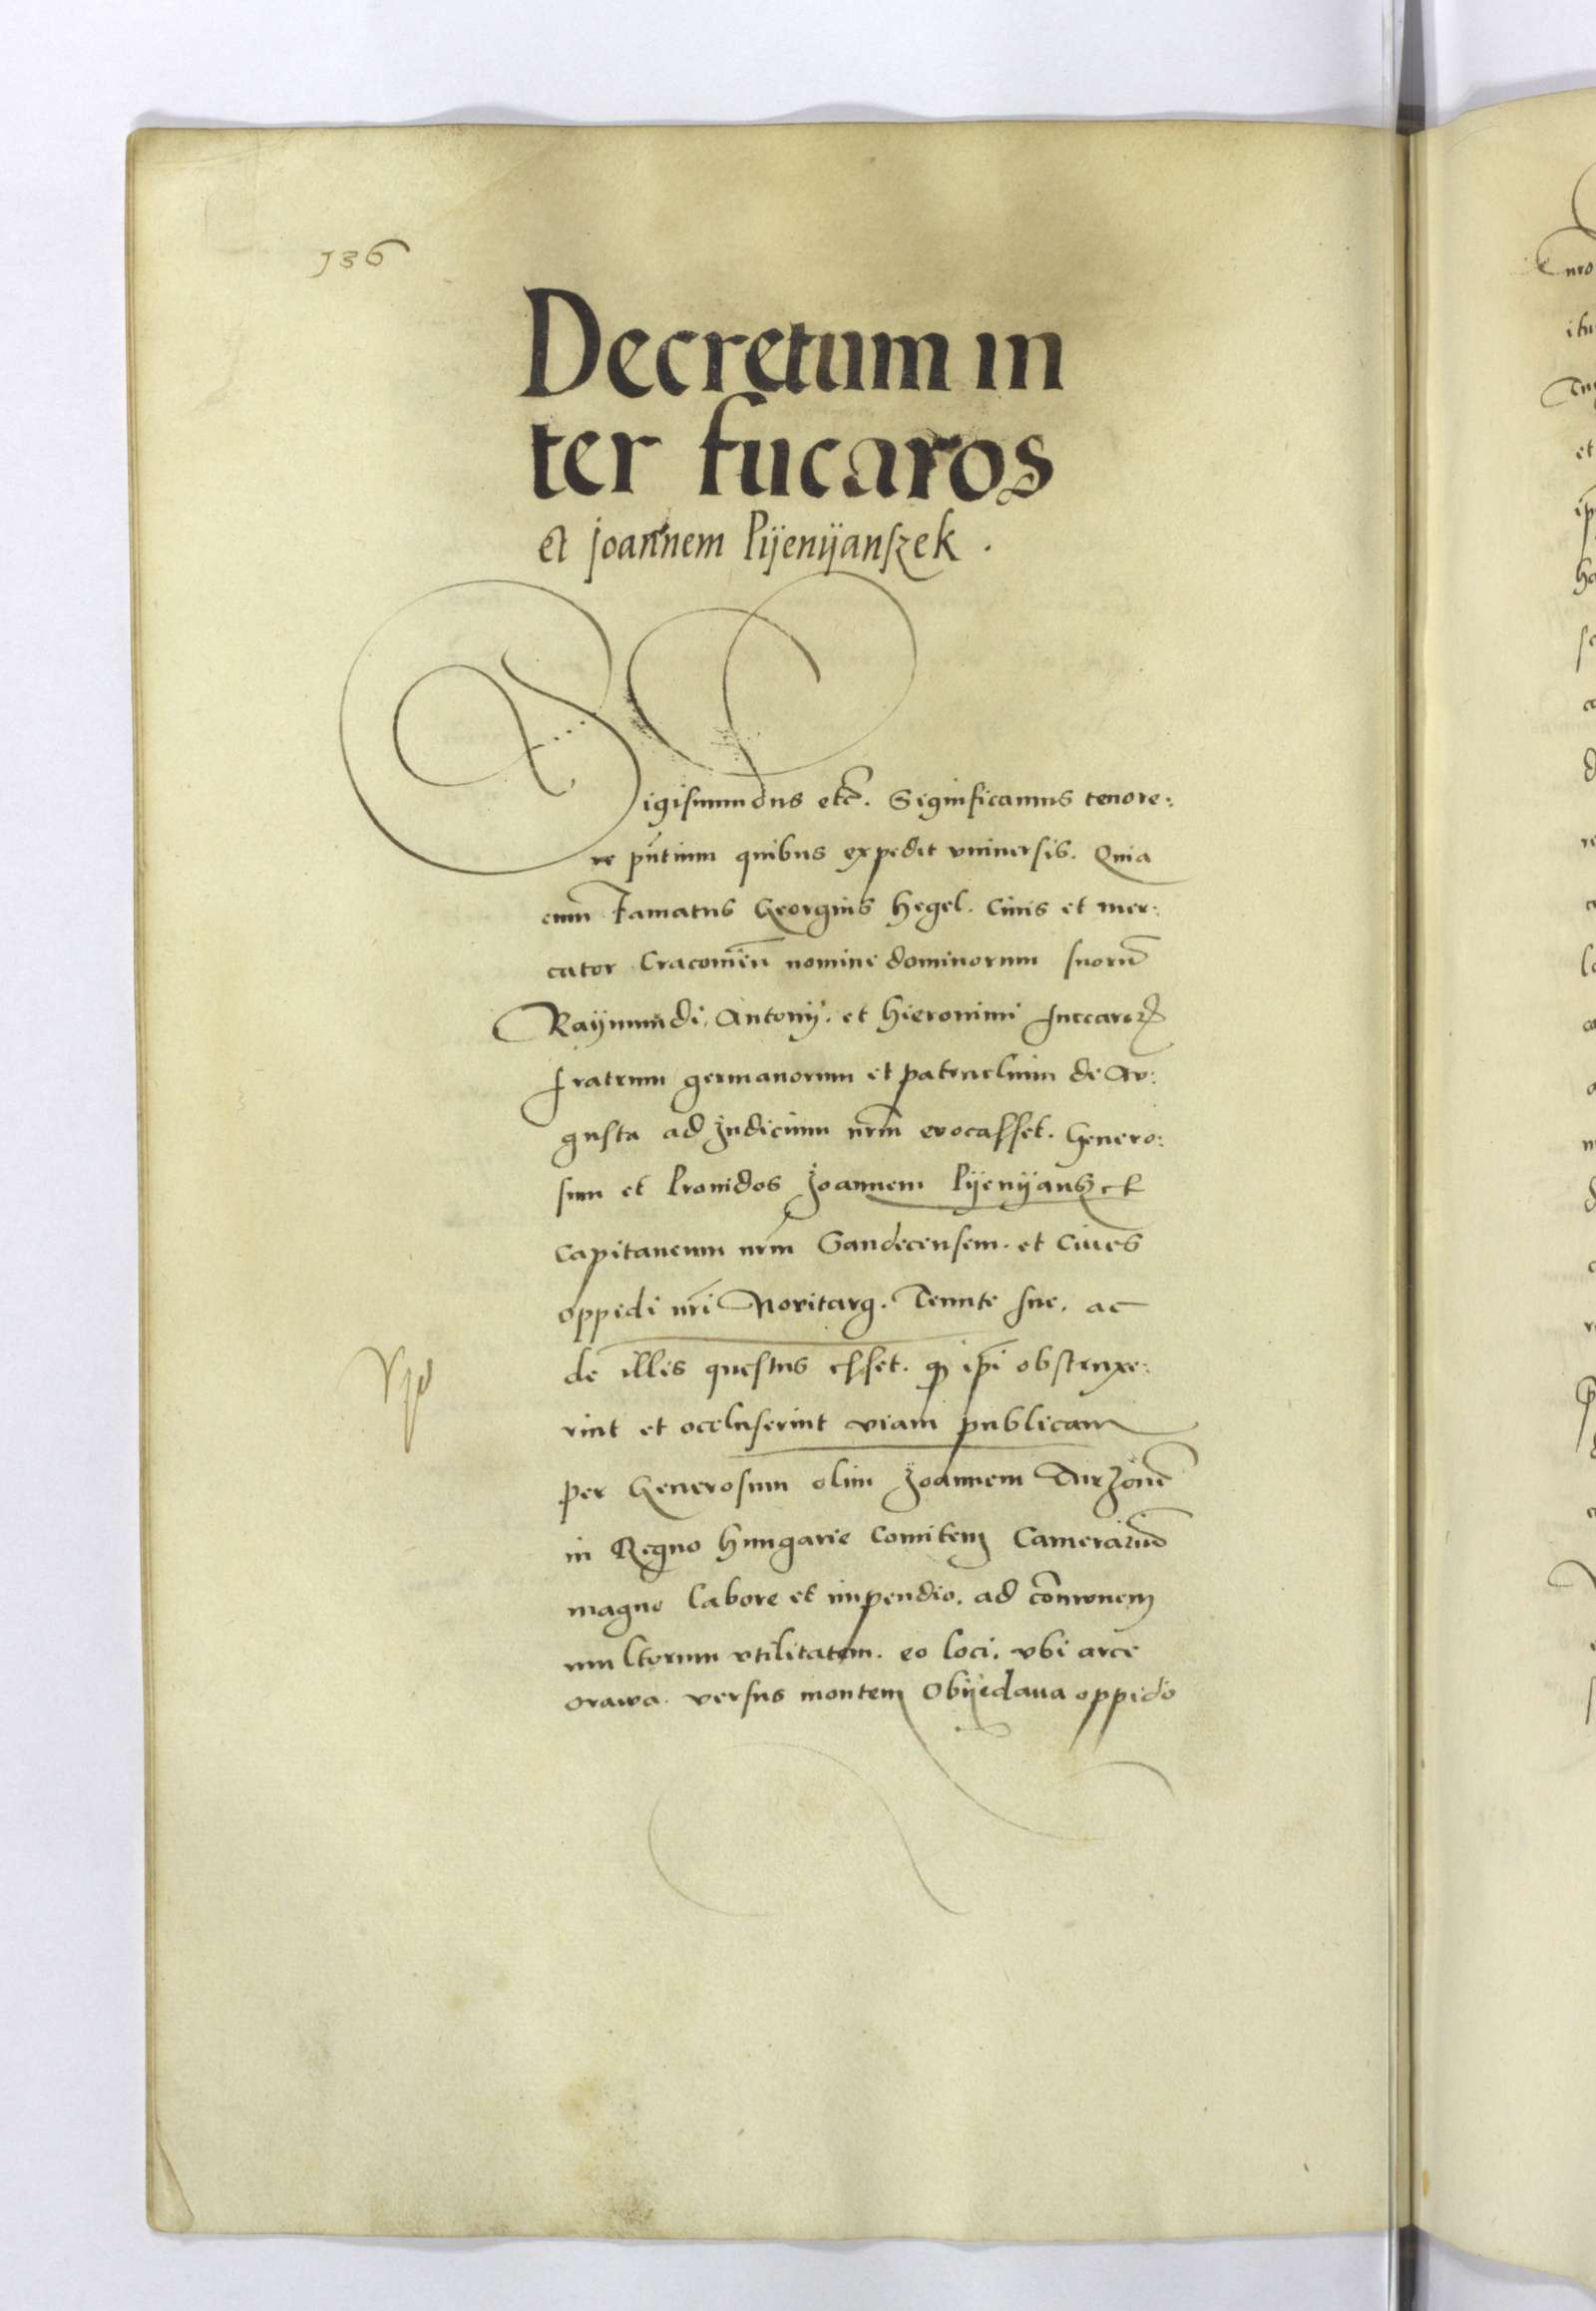 136
Decretum in
ter fucaros
et Joannem Pijenijanszek.
Sigismundus etc̃. Significamus tenore:
re pñtium quibus expedit vniuersis. Quia
cum Famatus Georgius Hegel. Ciuis et mer:
cator Cracouieñ nomine dominorum suorũ
Raijmundi, Antonij. et Hieronimi fuccaroꝝ
fratrum germanorum et patruelium de Au:
gusta ad Judicium nrm̃ euocasset. Genero:
sum et Prouidos Joannem Pijenijanszek
Capitaneum nrm̃ Sandecensem. et Ciues
oppidi nrĩ Novitarg. Tenute sue. ac
de illis questus esset. ꝙ ipĩ obstruxe:
rint et occluserint viam publicam
per Generosum olim Joannem Turzonẽ
in Regno Hungarie Comitem Camerariũ
magno labore et impendio. ad com̃unem
multorum vtilitatem. eo loci. vbi arce
orawa. versus montem Obijdaua oppido